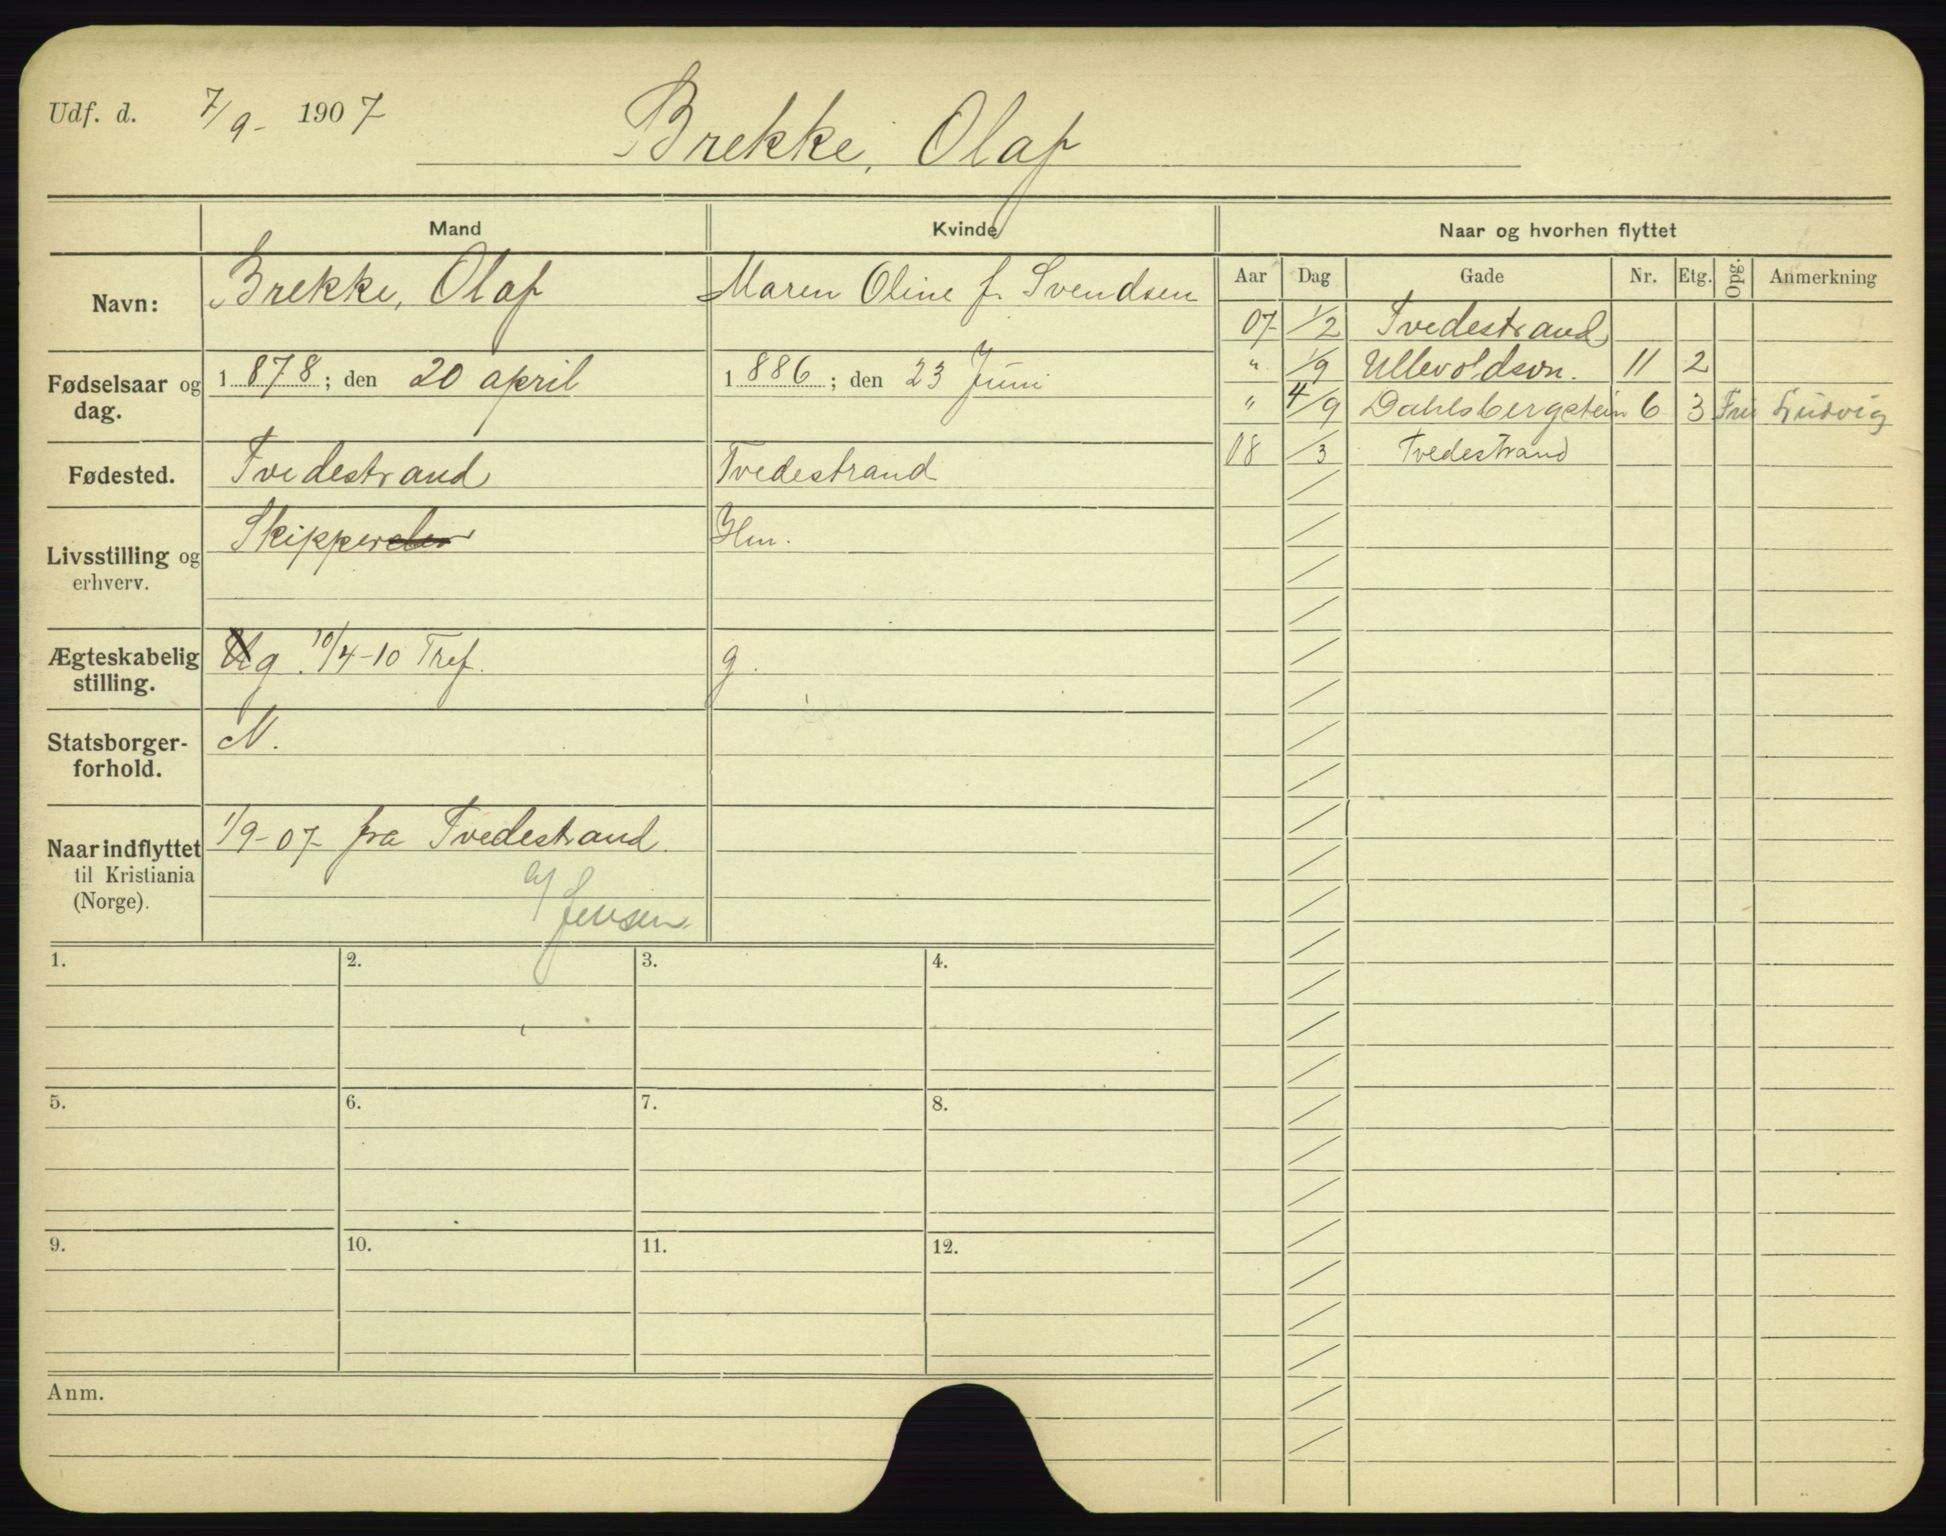 Udf. d. 7/9- 1907
Brekke, Olaf
Mand Kvinde Naar og hvorhen flyttet
Aar Dag Gade Nr. Etg. Opg. Anmerkning
Navn: Brekke, Olaf Maren Oline f. Svendsen
Fødselsaar og dag. 1878; den 20 april 1886; den 23 Juni
Fødested. Tvedestrand Tvedestrand
Livsstilling og erhverv. Skipper Hm.
Ægteskabelig stilling. g. 10/4-10 Tref. g.
Statsborger-forhold. N.
Naar indflyttet til Kristiania (Norge). 1/9-07 fra Tvedestrand
Jensen
07 1/2 Tvedestrand
" 1/9 Ullevoldsvn. 11 2
" 4/9 Dahlsbergstein 6 3 Fru Ludvig
08 /3 Tvedestrand
1. 2. 3. 4.
5. 6. 7. 8.
9. 10. 11. 12.
Anm.